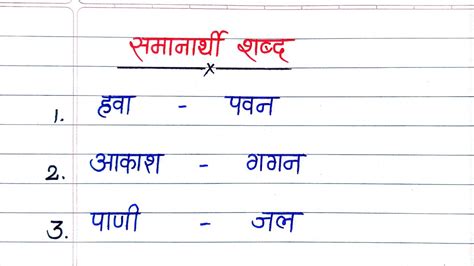 समानार्थी शब्द
x
1. हवा - पवन
2. आकाश - गगन
3. पाणी - जल